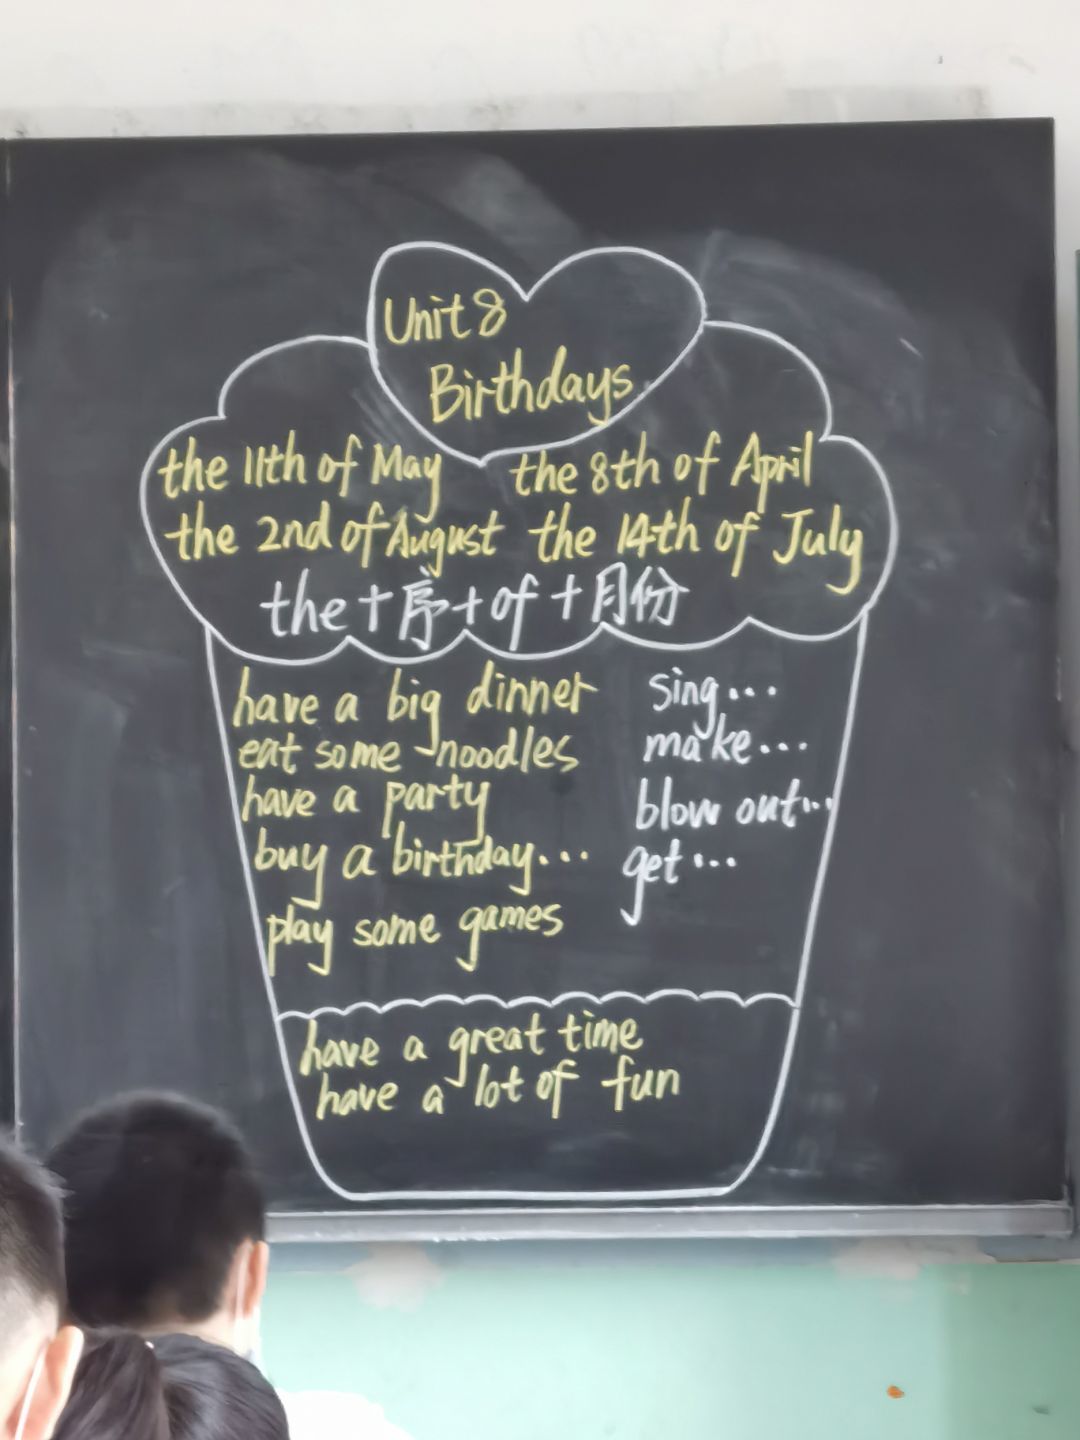 Unit 8
Birthdays
the 11th of May the 8th of April
the 2nd of August the 14th of July
the + 序 + of + 月份
have a big dinner
eat some noodles
have a party
buy a birthday...
play some games
sing...
make...
blow out...
get...
have a great time
have a lot of fun